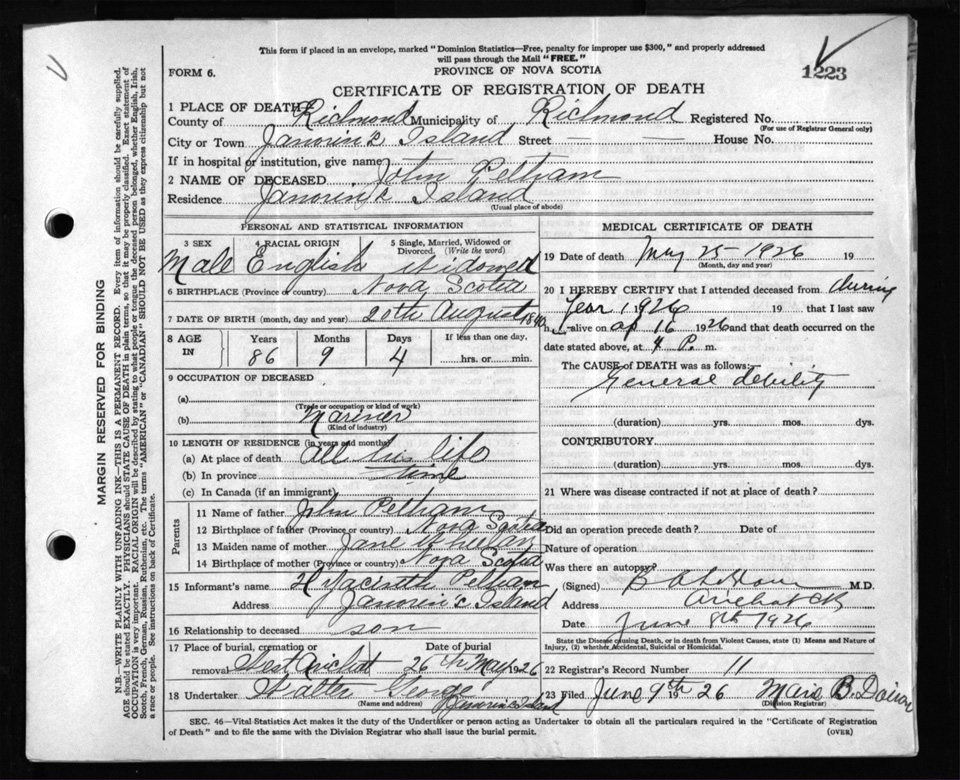 This form if placed in an envelope, marked "Dominion Statistics—Free, penalty for improper use $300," and properly addressed
will pass through the Mail "FREE."
FORM 6.
PROVINCE OF NOVA SCOTIA
1223
CERTIFICATE OF REGISTRATION OF DEATH
1 PLACE OF DEATH
County of Richmond Municipality of Richmond Registered No.
(For use of Registrar General only)
City or Town Janvrin's Island Street — House No.
If in hospital or institution, give name
2 NAME OF DECEASED John Peltham
Residence Janvrin's Island
(Usual place of abode)
PERSONAL AND STATISTICAL INFORMATION
3 SEX 4 RACIAL ORIGIN 5 Single, Married, Widowed or
Divorced. (Write the word)
Male English widowed
6 BIRTHPLACE (Province or country) Nova Scotia
7 DATE OF BIRTH (month, day and year) 20th August 1840
8 AGE IN Years Months Days If less than one day,
86 9 4 hrs. or min.
9 OCCUPATION OF DECEASED
(a)
(Trade or occupation or kind of work)
(b) Mariner
(Kind of industry)
10 LENGTH OF RESIDENCE (in years and months)
(a) At place of death all his life
(b) In province time
(c) In Canada (if an immigrant)
Parents
11 Name of father John Peltham
12 Birthplace of father (Province or country) Nova Scotia
13 Maiden name of mother Jane Whelan
14 Birthplace of mother (Province or country) Nova Scotia
15 Informant's name Hyacinth Peltham
Address Janvrin's Island
16 Relationship to deceased son
17 Place of burial, cremation or Date of burial
removal West Arichat 26th May 1926
18 Undertaker Walter George
(Name and address) Janvrin's Island
MEDICAL CERTIFICATE OF DEATH
19 Date of death May 25 - 1926 19
(Month, day and year)
20 I HEREBY CERTIFY that I attended deceased from during
Year 1926 19 that I last saw
h alive on ap 16 1926 and that death occurred on the
date stated above, at 4 P. m.
The CAUSE OF DEATH was as follows:
General debility
(duration) yrs. mos. dys.
CONTRIBUTORY
(duration) yrs. mos. dys.
21 Where was disease contracted if not at place of death?
Did an operation precede death? Date of
Nature of operation
Was there an autopsy?
(Signed) M.D.
Address Arichat CB
Date June 8th 1926
State the Disease causing Death, or in death from Violent Causes, state (1) Means and Nature of
Injury, (2) whether Accidental, Suicidal or Homicidal.
22 Registrar's Record Number 11
23 Filed June 9th 1926
(Division Registrar)
SEC. 46—Vital Statistics Act makes it the duty of the Undertaker or person acting as Undertaker to obtain all the particulars required in the "Certificate of Registration
of Death" and to file the same with the Division Registrar who shall issue the burial permit. (OVER)
MARGIN RESERVED FOR BINDING
N.B.—WRITE PLAINLY WITH UNFADING INK—THIS IS A PERMANENT RECORD. Every item of information should be carefully supplied.
AGE should be stated EXACTLY. PHYSICIANS should STATE CAUSE OF DEATH in plain terms, so that it may be properly classified. Exact statement of
OCCUPATION is very important. RACIAL ORIGIN will be described by stating to what people or tongue the deceased person belonged, whether English, Irish,
Scotch, French, German, Russian, Ruthenian, etc. The terms "AMERICAN" or "CANADIAN" SHOULD NOT BE USED as they express citizenship but not
a race or people. See instructions on back of Certificate.